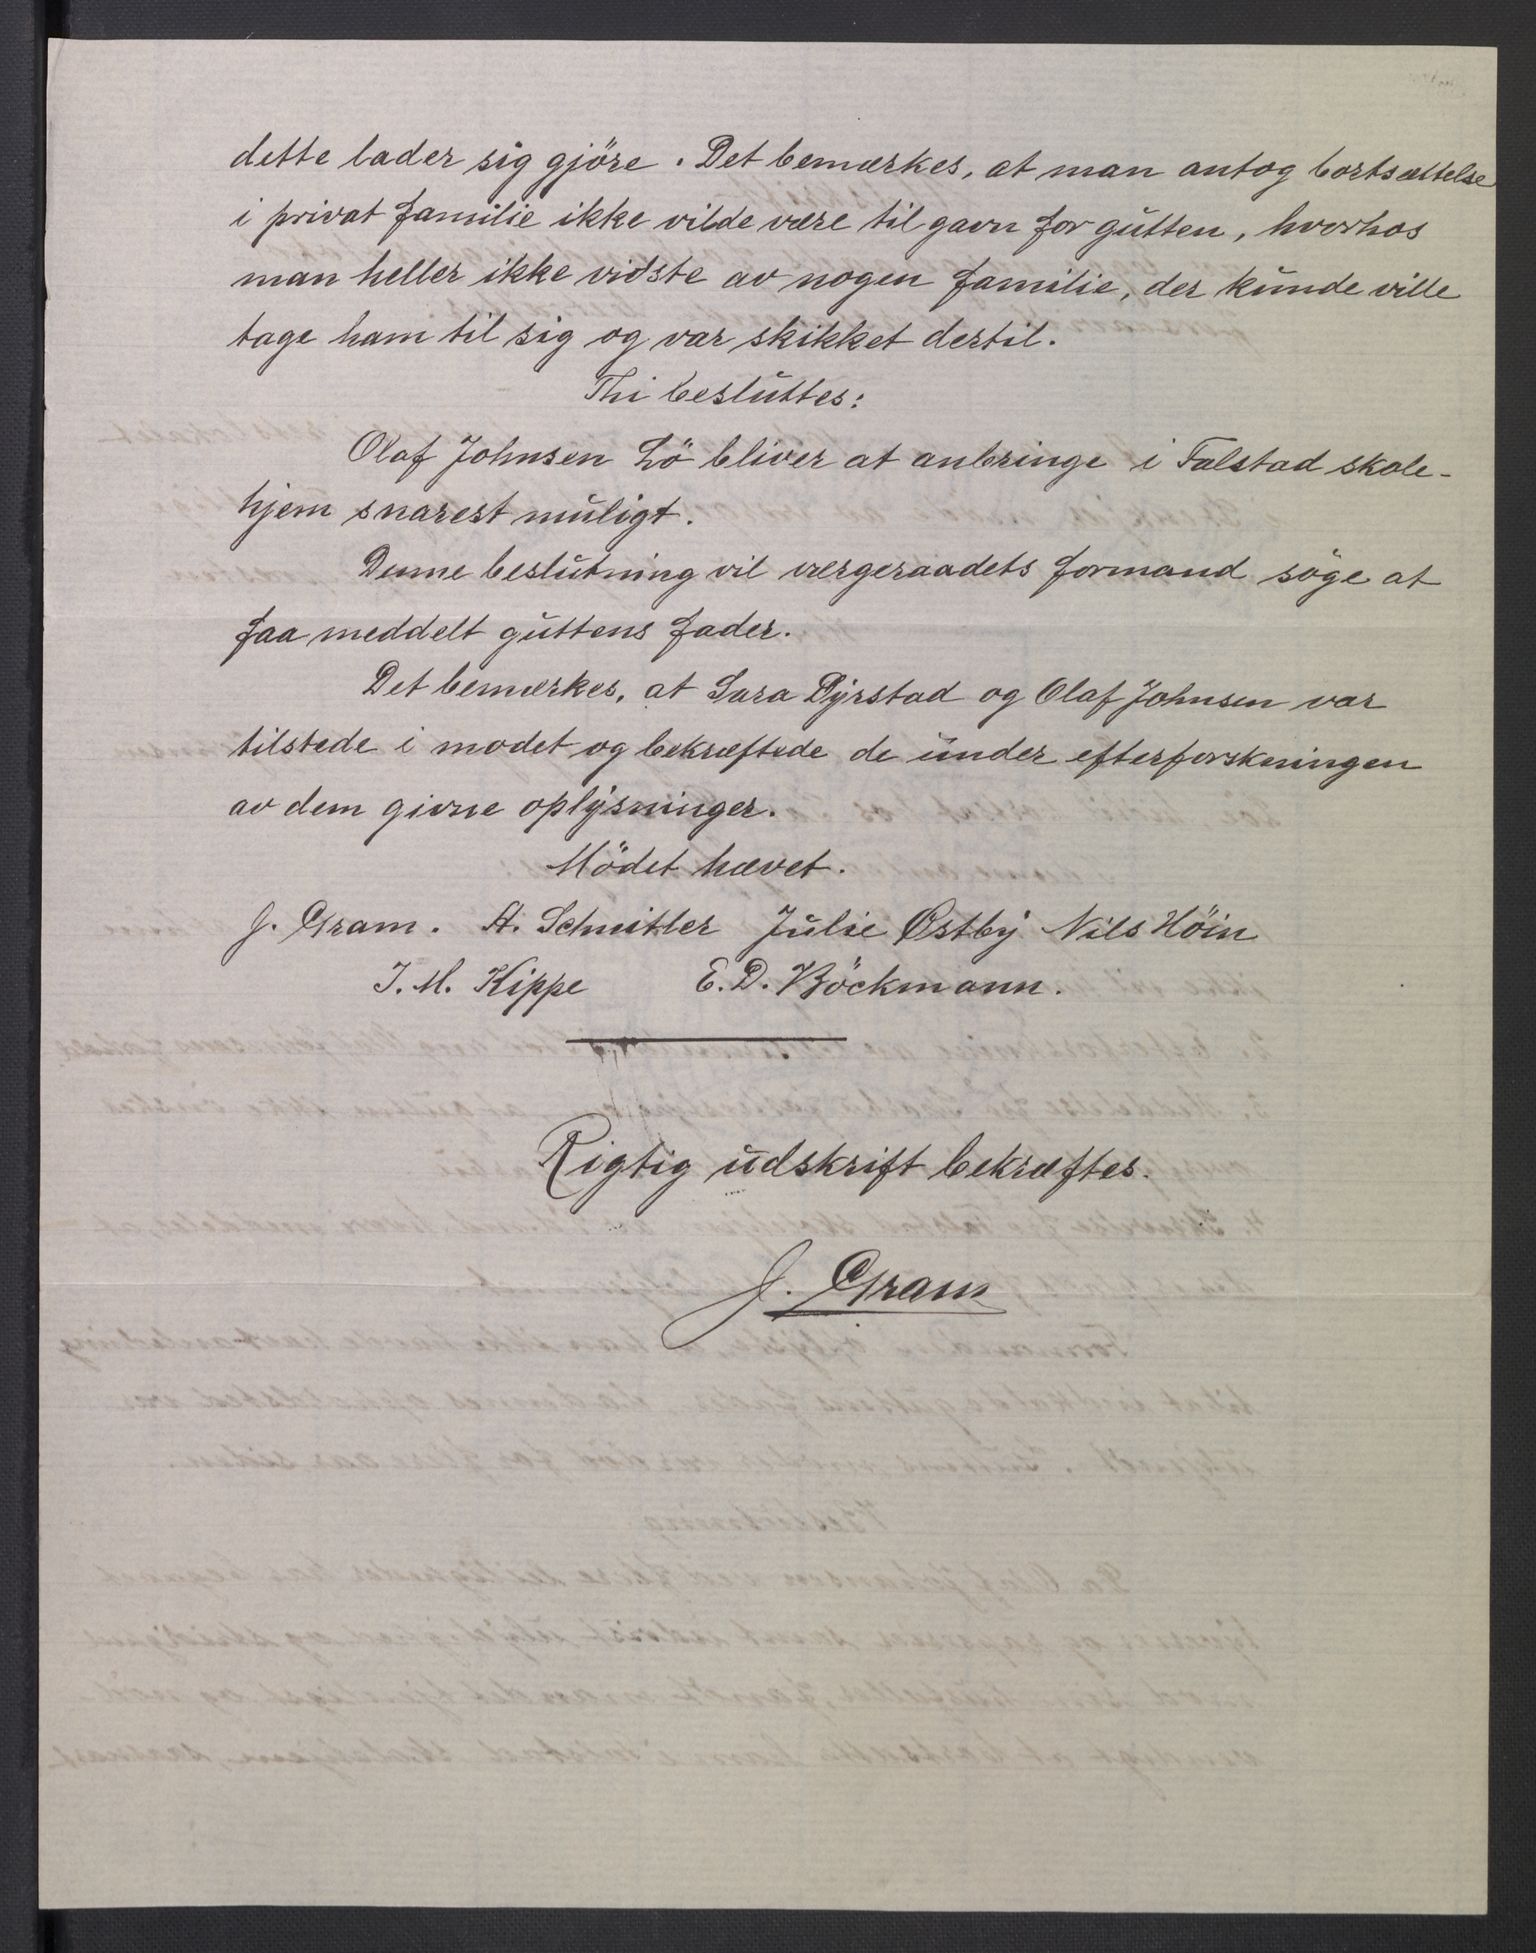 dette lader sig gjöre. Det bemærkes, at man antog bortsættelse
i privat familie ikke vilde være til gavn for gutten, hvorhos
man heller ikke vidste av nogen familie, der kunde ville
tage ham til sig og var skikket dertil.
Thi besluttes:
Olaf Johnsen Lö bliver at anbringe i Falstad skole-
hjem snarest muligt.
Denne beslutning vil værgeraadets formand söge at
faa meddelt guttens fader.
Det bemærkes, at Sara Dyrstad og Olaf Johnsen var
tilstede i modet og bekræftede de under efterforskningen
av dem givne oplysninger.
Mödet hævet.
J. Gram. A. Schnitler Julie Østby Nils Höin
J. M. Kippe E. D. Böckmann.
Rigtig udskrift bekræftes.
J. Gram